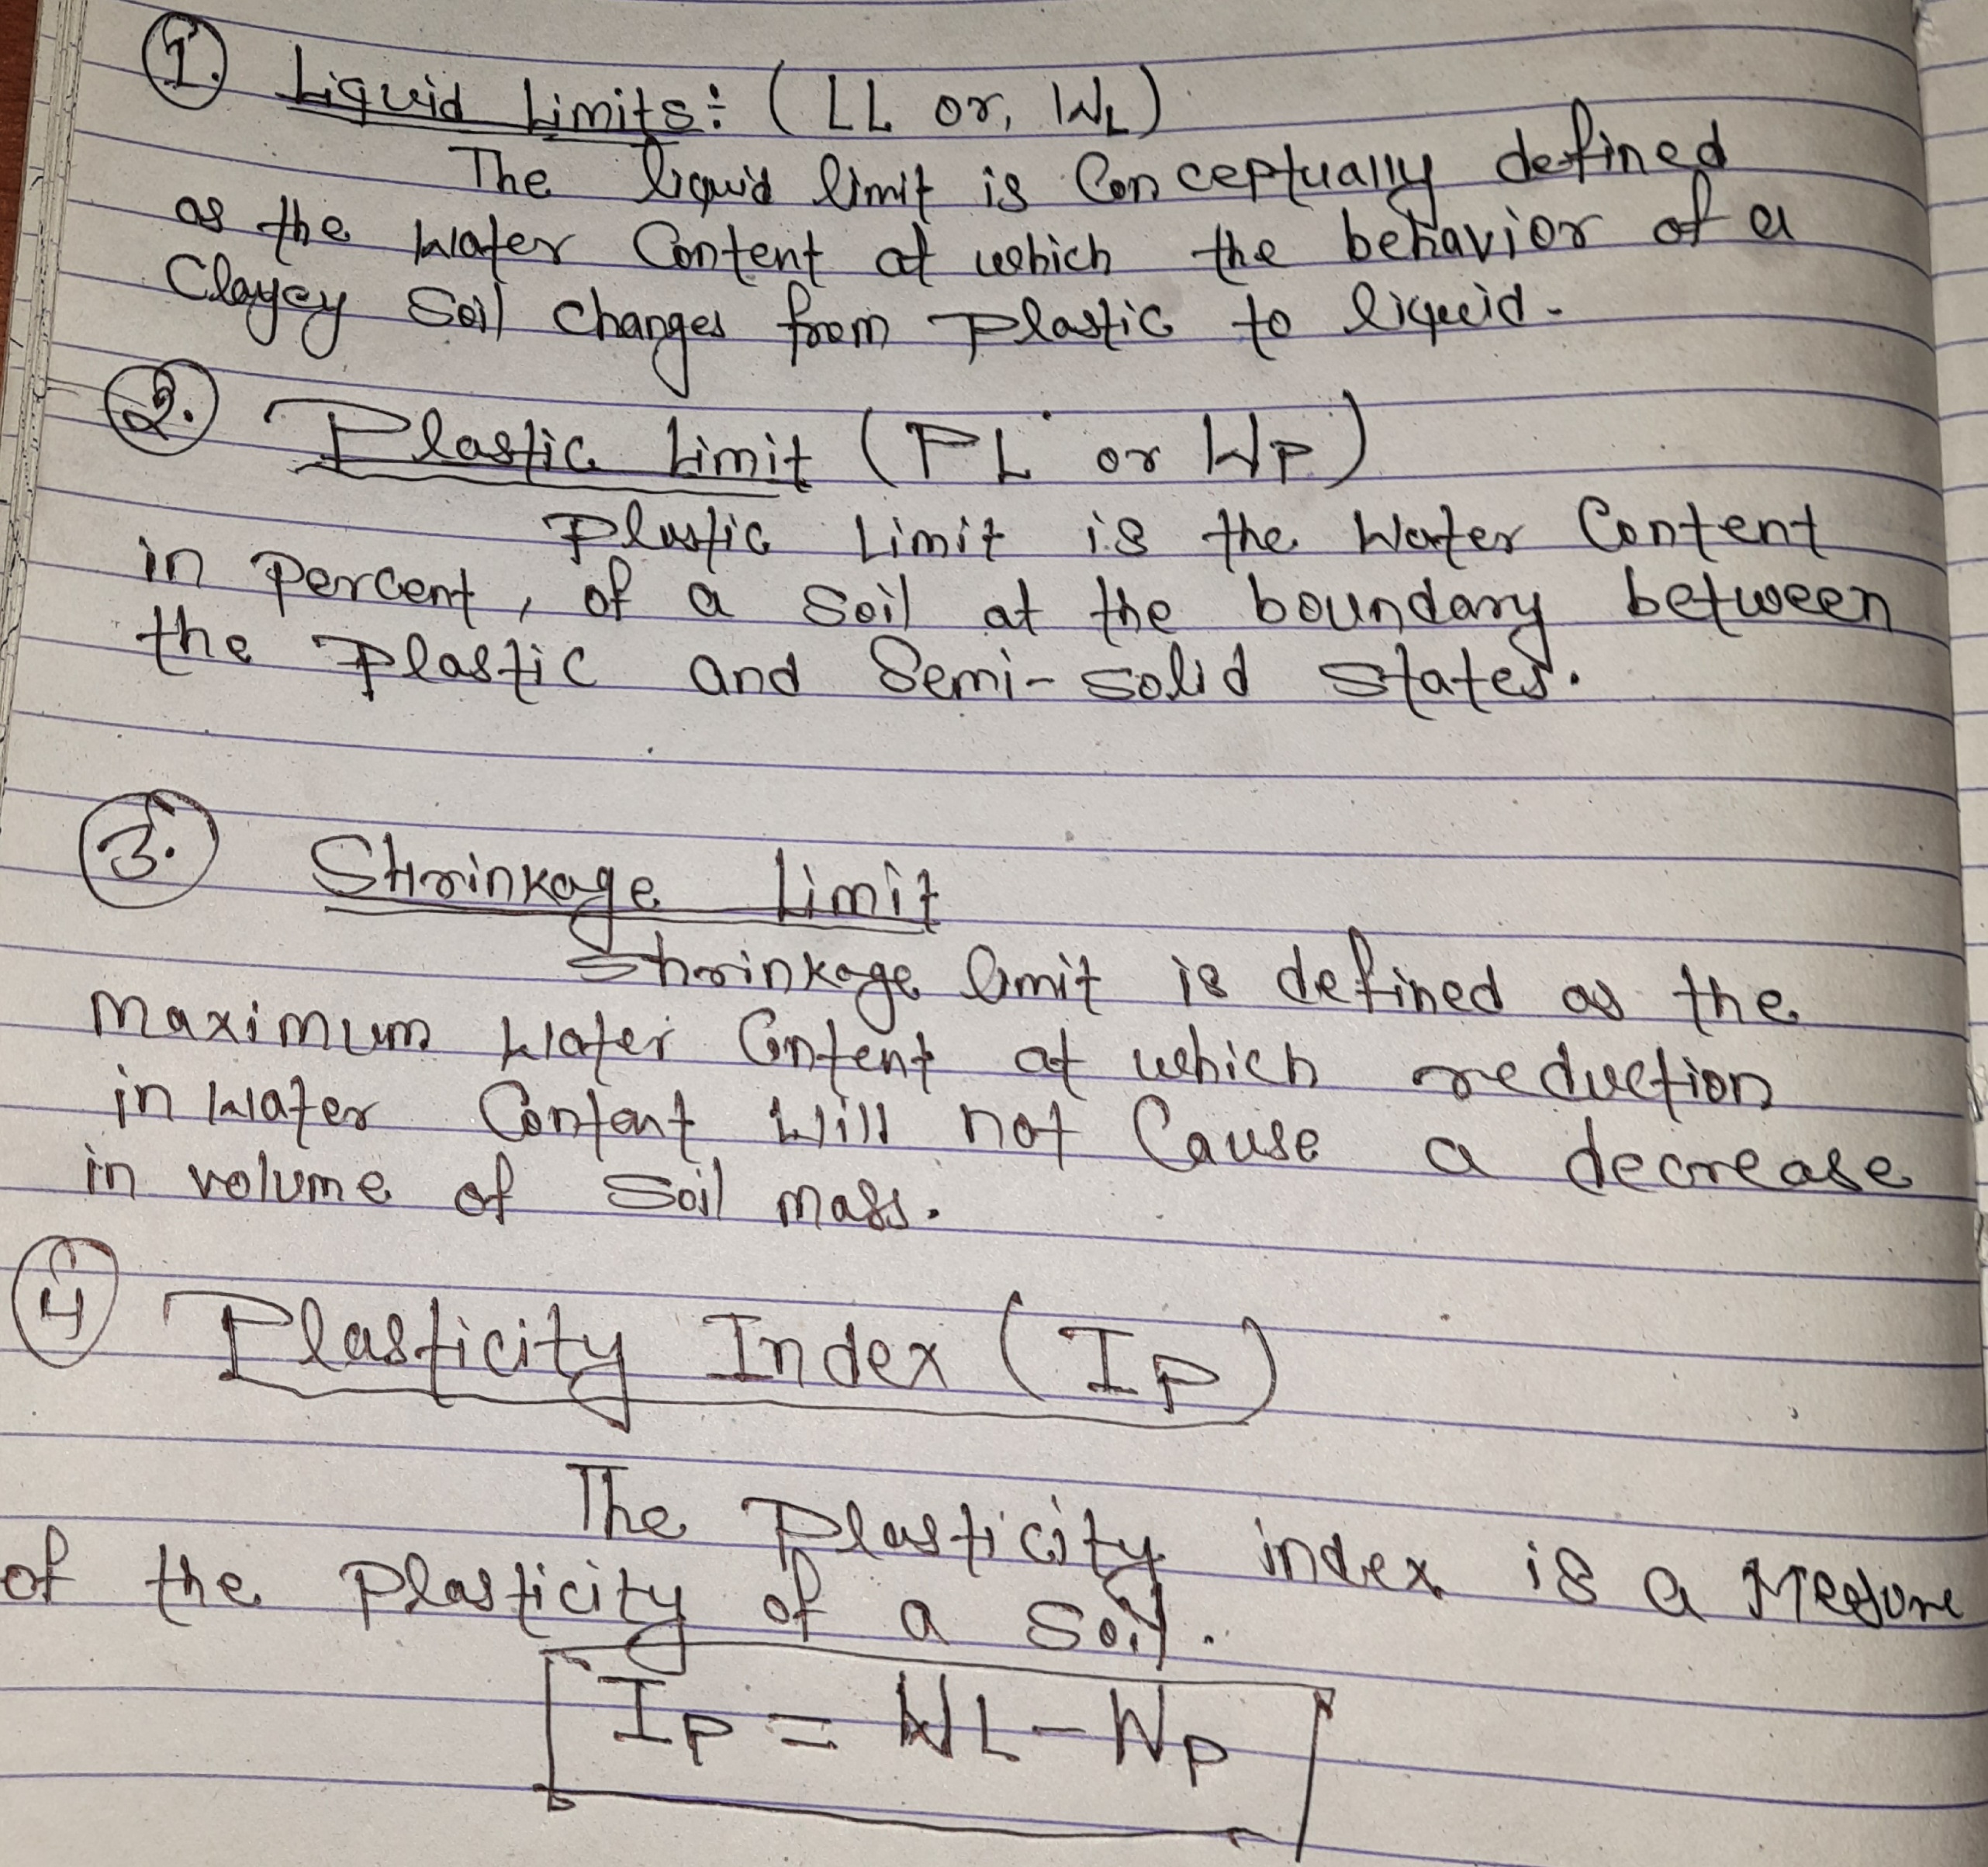 1. Liquid Limits: (LL or, WL)
The liquid limit is Conceptually defined
as the Water Content at which the behavior of a
Clayey Soil changes from plastic to liquid.
2. Plastic Limit (PL or WP)
Plastic Limit is the Water Content
in percent, of a soil at the boundary between
the plastic and Semi-solid states.
3. Shrinkage Limit
Shrinkage limit is defined as the
maximum Water Content at which reduction
in water Content Will not Cause a decrease
in volume of soil mass.
4 Plasticity Index (IP)
The Plasticity index is a Measure
of the Plasticity of a Soil.
IP = WL - WP